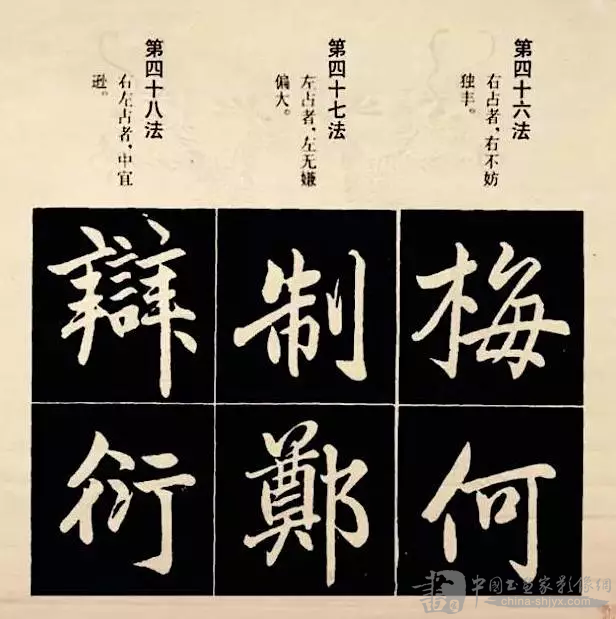 第四十六法
右占者，右不妨
独丰。
第四十七法
左占者，左无嫌
偏大。
第四十八法
右左占者，中宜
逊。
梅
何
制
鄭
辯
衍
china-shjyx.com